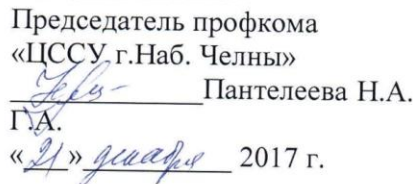 Председатель профкома
«ЦССУ г.Наб. Челны»
Пантелеева Н.А.
Г.А.
«21» декабря 2017 г.